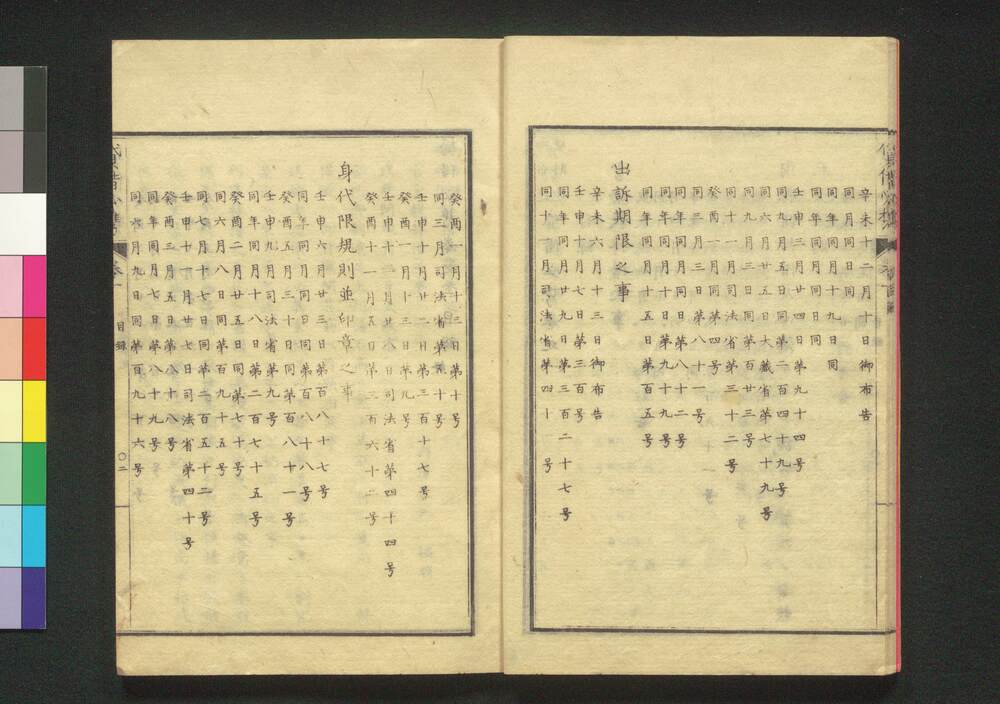 辛未十二月十日御布告
同月同日同
同年同月十九日同
同年同月同日同
壬申三月廿四日第九十四号
同第二百四十九号
同六月廿五日大蔵省第七十九号
同九月三日同第百廿三号
同十一月司法省第三十二号
癸酉一月第四号
同三月三日第八十一号
同年同月同日第八十二号
同年同月十日第九十九号
同年同月十五日第百五号
出訴期限之事
辛未六月十三日御布告
壬申十一月七日第三百号
同年同月廿九日第三百二十七号
同十一月司法省第四十号
癸酉一月十三日第十号
同三月司法省第五十号
壬申十月廿二日第三百十七号
癸酉一月十三日第九号
壬申十二月八日司法省第四十四号
癸酉十一月五日第三百六十二号
身代限規則並印章之事
壬申六月廿三日第百八十七号
同年同月同日同第百八十八号
癸酉五月三十日同第百八十一号
壬申九月司法省第九号
同年同月十八日第二百七十五号
癸酉二月廿五日同第七十号
同六月八日同第百九十五号
同七月十七日同第二百五十二号
壬申十一月廿七日司法省第四十号
癸酉三月五日第八十八号
同年同月七日第八十九号
同六月九日同第百九十六号
目録 〇二